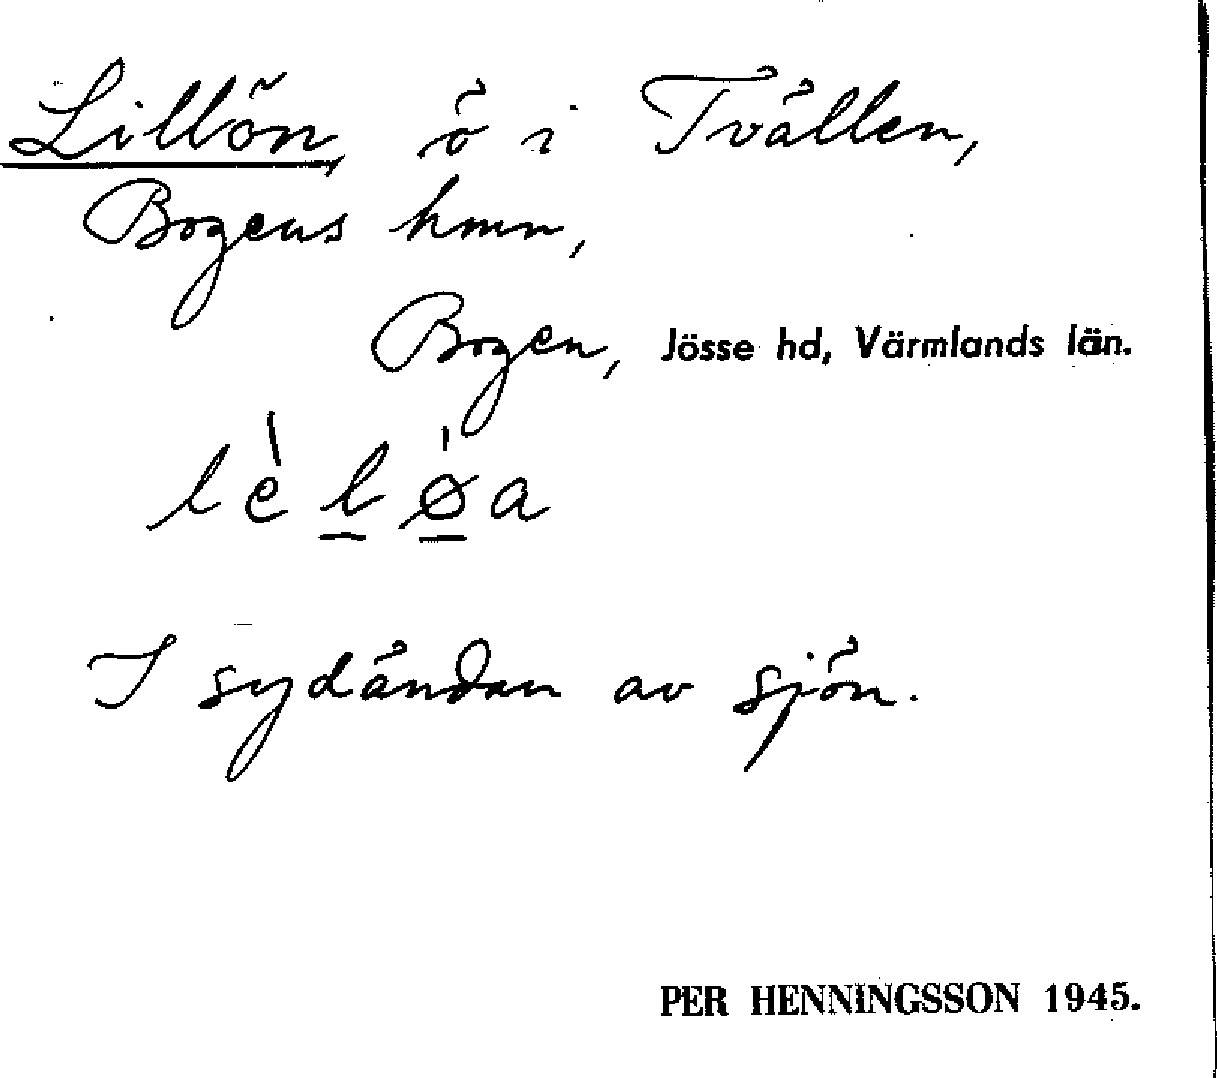 Lillön, ö i Tvällen,
Bogens hmn,
Bogen, Jösse hd, Värmlands län.
lèl̲ǿ̲a
I sydändan av sjön.
PER HENNINGSSON 1945.